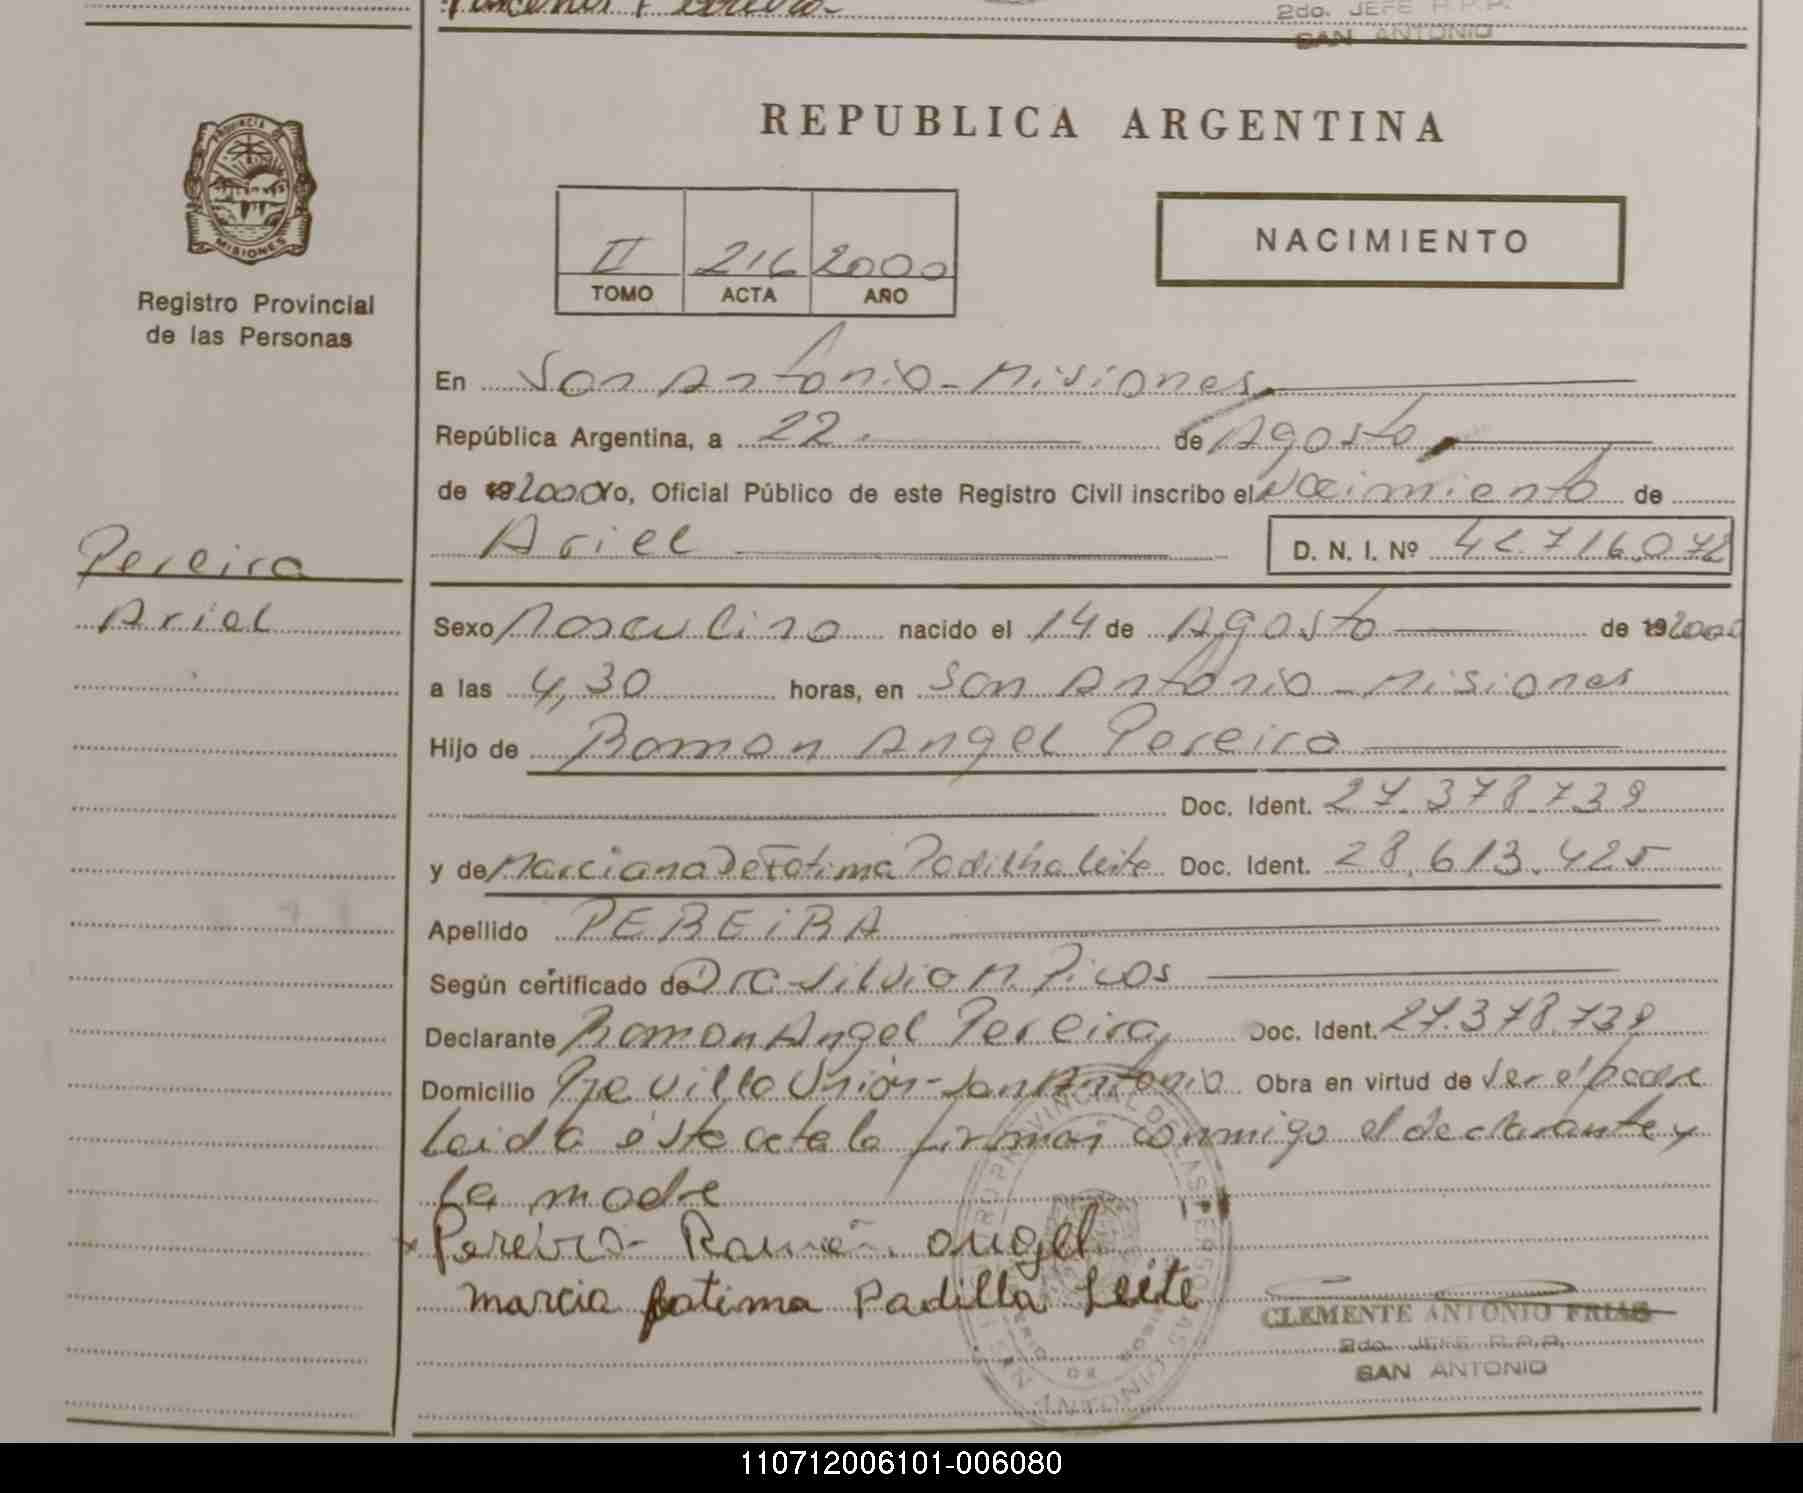 2do. JEFE R.P.P.
SAN ANTONIO
PROVINCIA DE
MISIONES
Registro Provincial
de las Personas
REPUBLICA ARGENTINA
II 216 2000
TOMO ACTA AÑO
NACIMIENTO
En San Antonio - Misiones
República Argentina, a 22 de Agosto
de 19 2000 Yo, Oficial Público de este Registro Civil inscribo el Nacimiento de
Ariel D. N. I. Nº 42.716.072
Pereira
Ariel
Sexo Masculino nacido el 14 de Agosto de 19 2000
a las 4,30 horas, en San Antonio - Misiones
Hijo de Ramon Angel Pereira
Doc. Ident. 27.378.739
y de Marciana De Fatima Padilha Leite Doc. Ident. 28.613.425
Apellido PEREiRA
Según certificado de Dra Silvia N. Picos
Declarante Ramon Angel Pereira Doc. Ident. 27.378.739
Domicilio Pje Villa Unión - San Antonio Obra en virtud de Ser el padre
Leida éste acta la firman conmigo el declarante y
la madre
x Pereira Ramón angel
marcia fatima Padilla Leite
CLEMENTE ANTONIO FRIAS
2do. JEFE R.P.P.
SAN ANTONIO
110712006101-006080